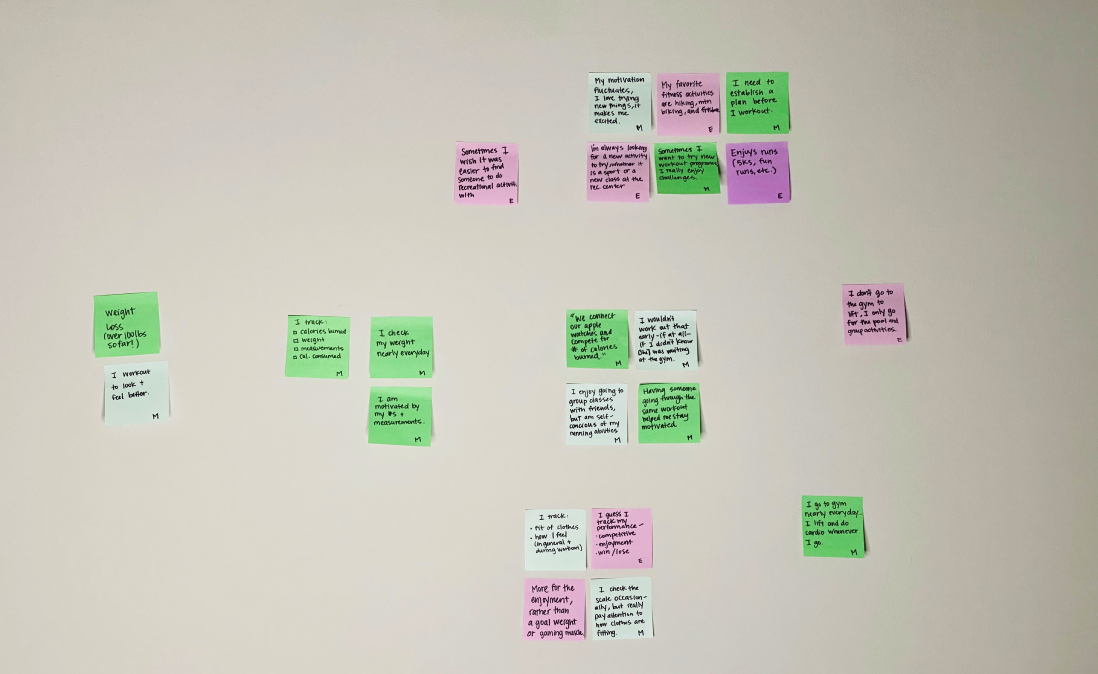 My motivation
fluctuates,
I love trying
new things, it
makes me
excited.
M
My favorite
fitness activities
are hiking, mtn
biking, and
E
I need to
establish a
plan before
I workout.
M
Sometimes I
wish it was
easier to find
someone to do
recreational activit.
with
E
I'm always looking
for a new activity
to try, whether it
is a sport or a
new class at the
rec center
E
Sometimes I
want to try new
workout programs
I really enjoy
challenges.
M
Enjoys runs
(5ks, fun
runs, etc.)
E
weight
loss
(over 100lbs
so far!)
I workout
to look +
feel better.
M
I track:
calories burned
weight
measurements
cal. consumed
M
I check
my weight
nearly everyday
M
I am
motivated by
my #s +
measurements.
M
"We connect
our apple
watches and
compete for
# of calories
burned."
M
I wouldn't
work out that
early - if at all -
if I didn't know
was waiting
at the gym.
M
I enjoy going to
group classes
with friends,
but am self-
concious of my
running abilities
M
Having someone
going through the
same workout
helped me stay
motivated.
M
I don't go to
the gym to
lift, I only go
for the pool and
group activities.
E
I track:
• fit of clothes
• how I feel
(in general +
during workout)
I guess I
track my
performance -
• competitive
• enjoyment
• win/lose
E
More for the
enjoyment,
rather than
a goal weight
or gaining muscle.
I check the
scale occasion-
ally, but really
pay attention to
how clothes are
fitting.
M
I go to gym
nearly everyday.
I lift and do
cardio whenever
I go.
M